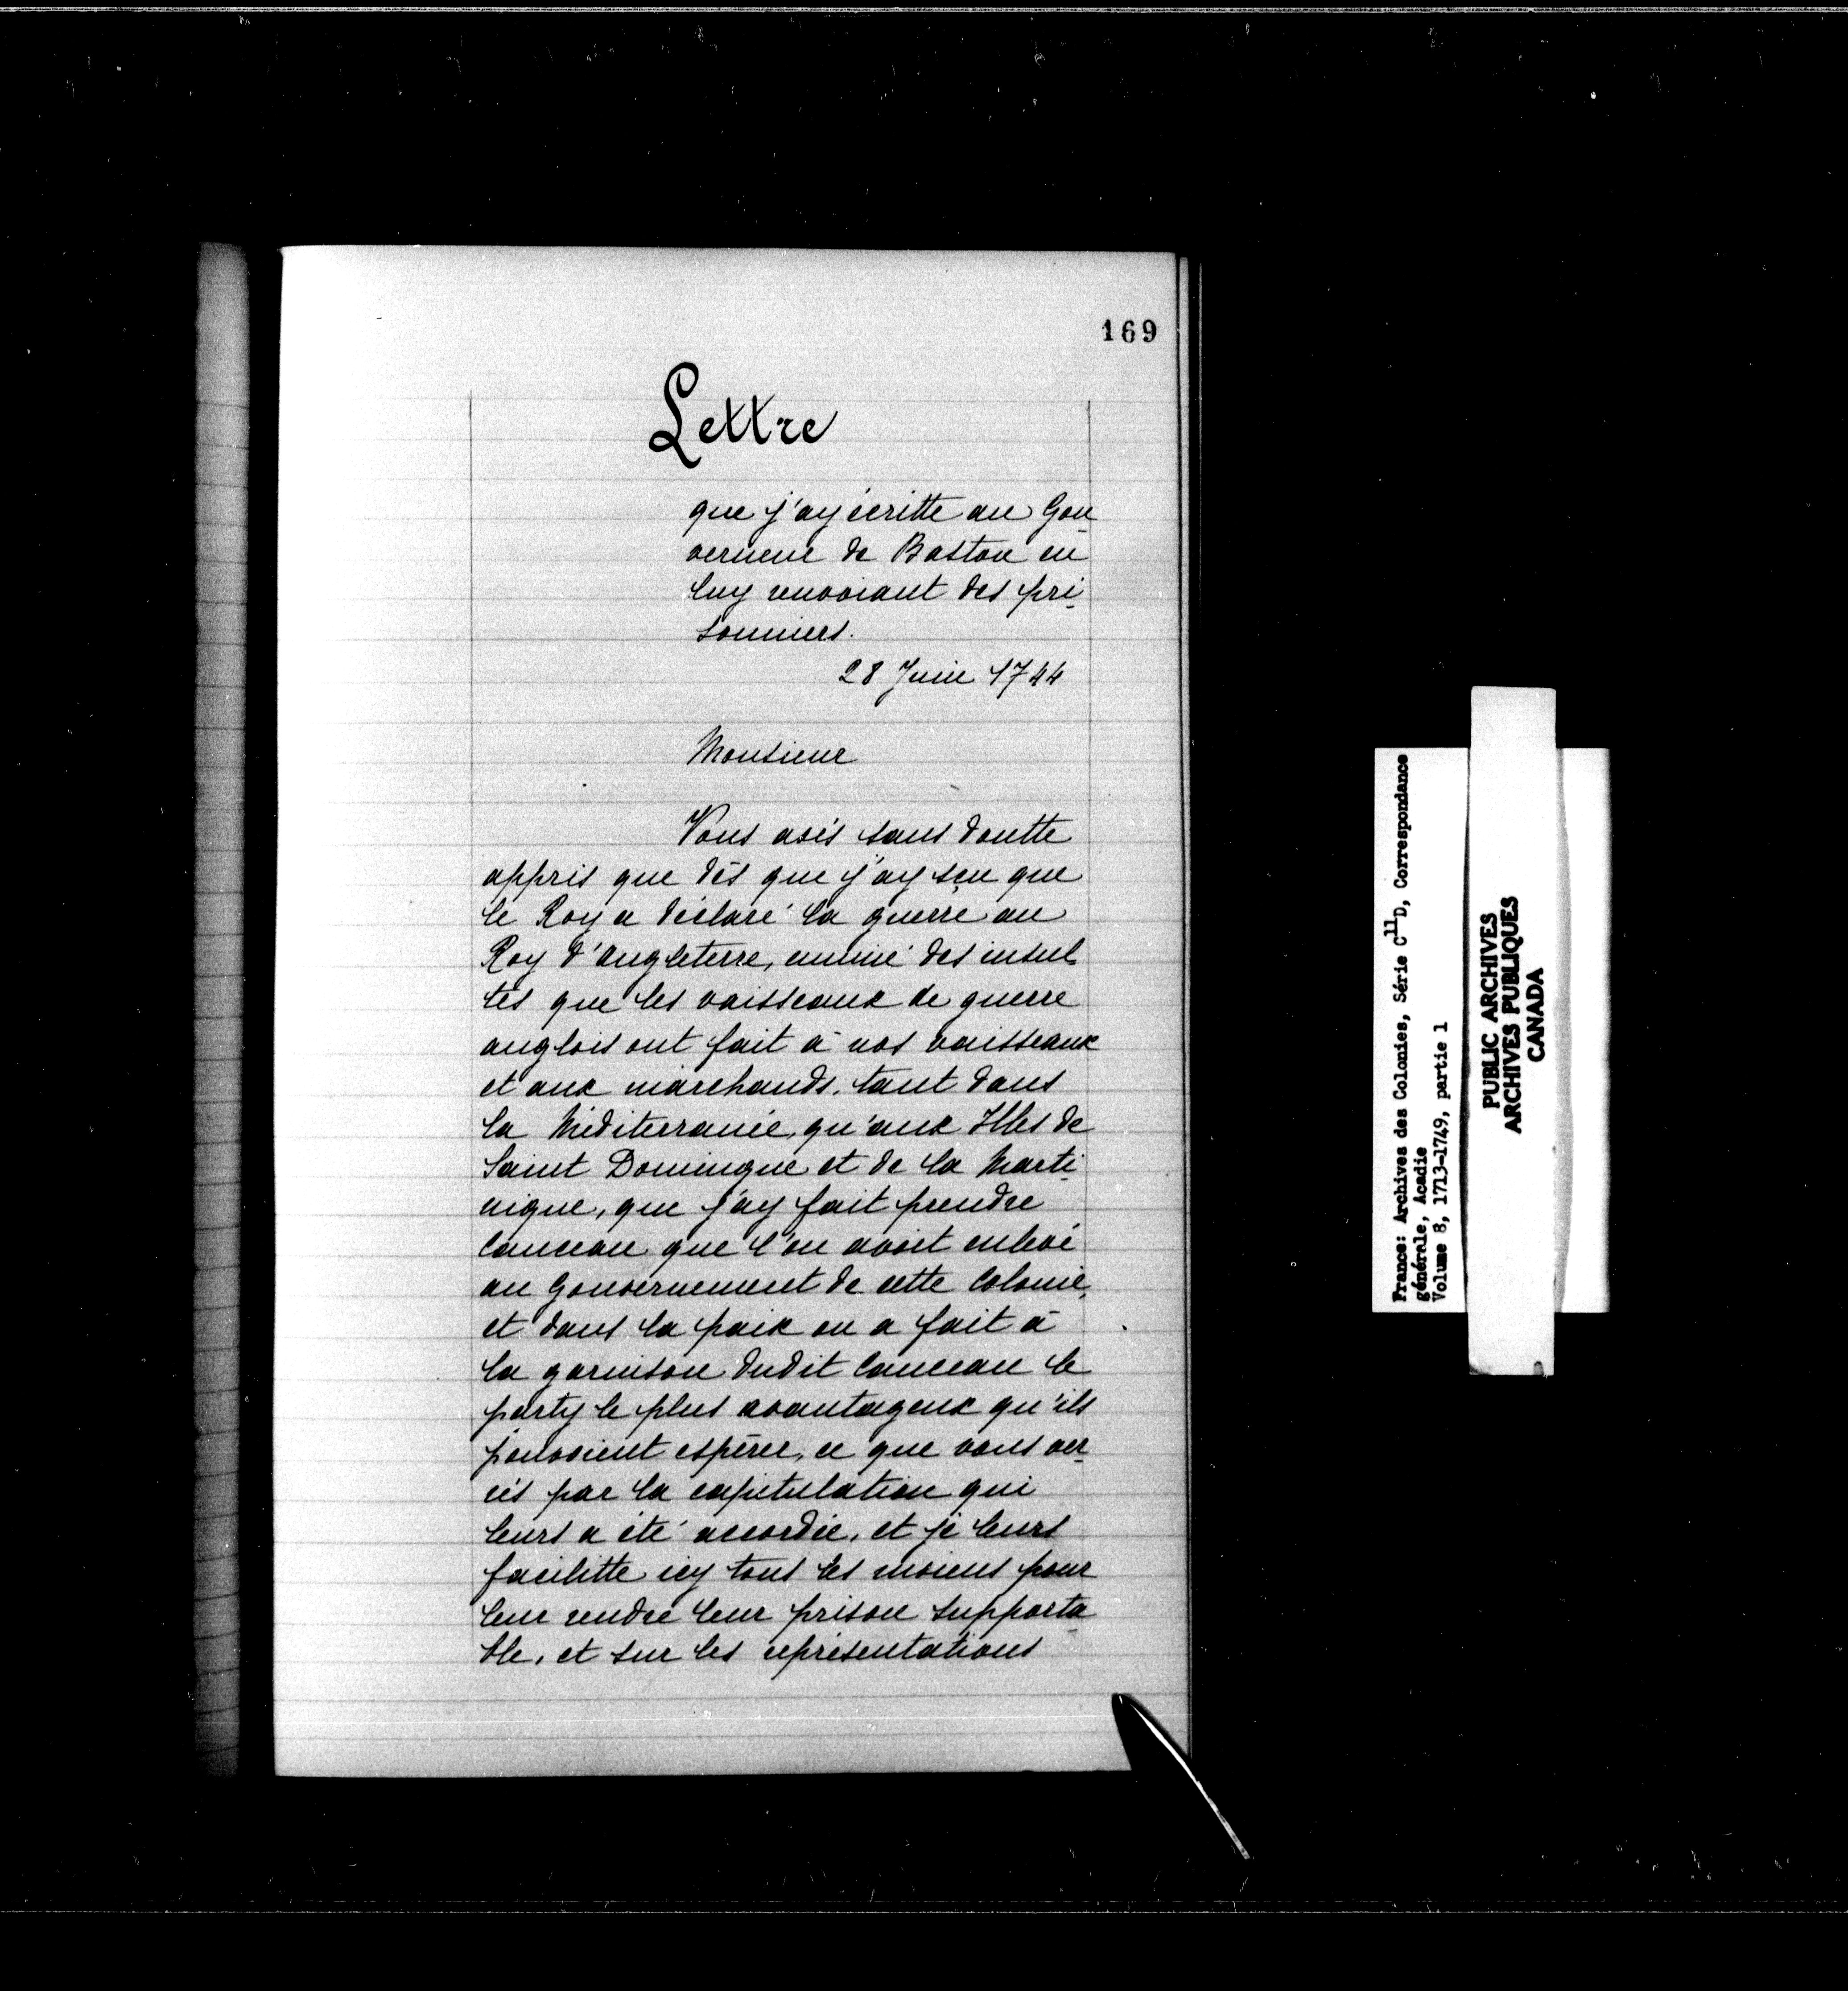 169
Lettre
que j'ay écritte au Gou
verneur de Baston en
luy renvoiant des pri
sonniers.
28 Juin 1744
Monsieur
Vous avés sans doutte
appris que dès que j'ay sçu que
le Roy a déclaré la guerre au
Roy d'Angleterre, ennuié des insul
tes que les vaisseaux de guerre
anglois ont fait à nos vaisseaux
et aux marchands, tant dans
la Méditerranée, qu'aux Isles de
Saint Domingue et de la Marti
nique, que j'ay fait prendre
Canceau que l'on avoit enlevé
au Gouvernement de cette Colonie,
et dans la paix on a fait à
la garnison dudit Canceau le
party le plus avantageux qu'ils
pouvoient espérer, ce que vous ver
rés par la capitulation qui
leurs a été accordée, et je leurs
facilitte icy tous les moiens pour
leur rendre leur prison supporta
ble, et sur les représentations
France: Archives des Colonies, Série C11D, Correspondance
générale, Acadie
Volume 8, 1713-1749, partie 1
PUBLIC ARCHIVES
ARCHIVES PUBLIQUES
CANADA